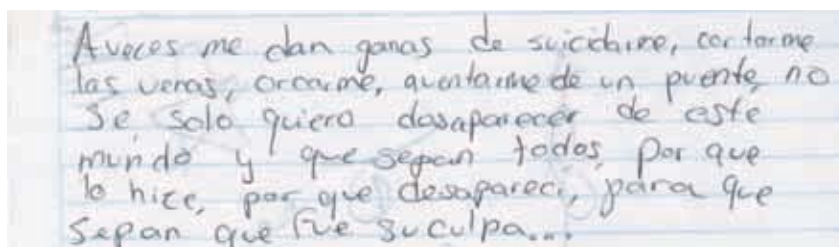 A veces me dan ganas de suicidarme, cortarme
las venas, orcarme, aventarme de un puente, no
se, solo quiero desaparecer de este
mundo y que sepan todos, por que
lo hice, por que desapareci, para que
sepan que fue su culpa...